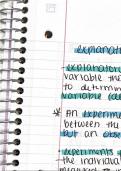 explanato
explanator
variable the
to determin
variable (de
An experime
between the
but an obse
experiments
the individual